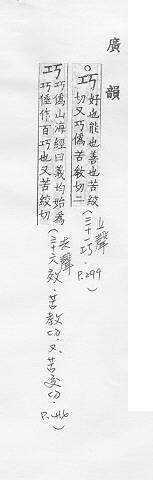 廣韻
○巧 好也能也善也苦絞
切又巧僞苦敎切二
(上聲
三十一巧. P.299)
巧 巧僞山海經曰義均始爲
巧倕作百巧也又苦絞切
(去聲
三十六效.苦教切.又.苦交切. P.416)